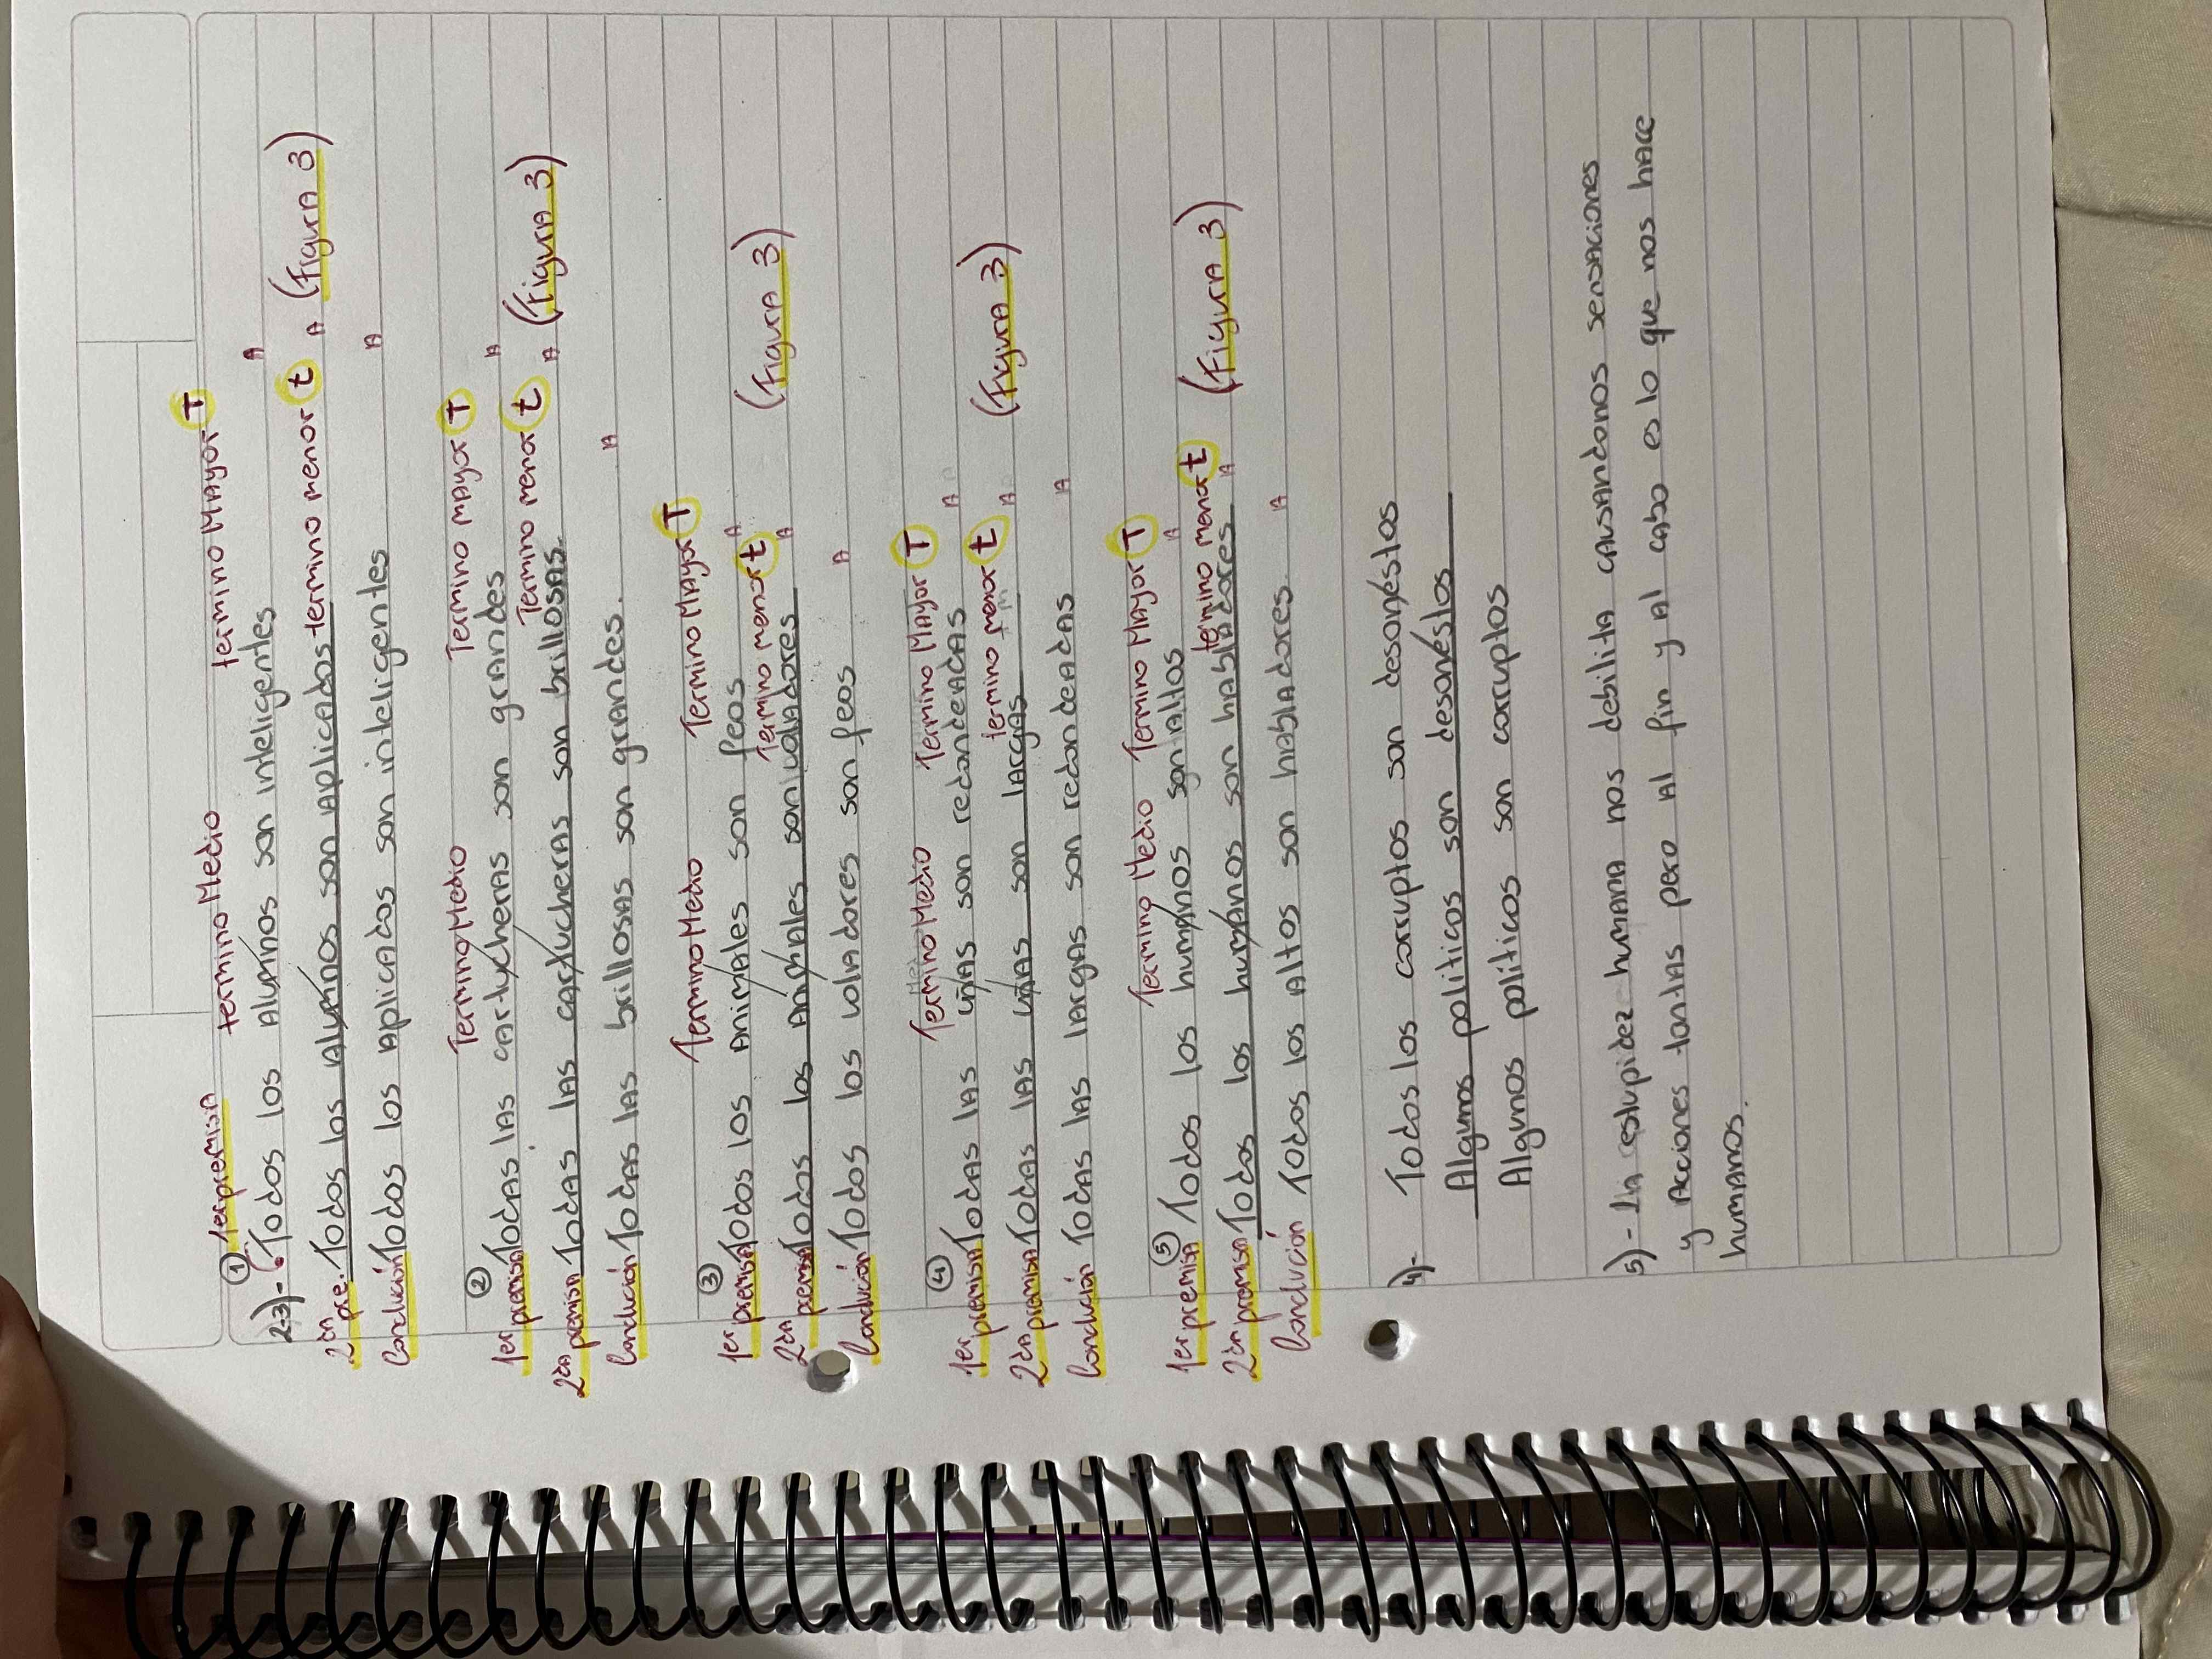 ① 1er premisa termino Medio termino Mayor T
2-3)- Todos los alumnos son inteligentes A
2da pre. Todos los alumnos son aplicados termino menor t A (figura 3)
Conclución Todos los aplicados son inteligentes A
② Termino Medio Termino mayor T
1er premisa Todas las cartucheras son grandes A
Termino menor t
2da premisa Todas las cartucheras son brillosas. A (figura 3)
Conclución Todas las brillosas son grandes. A
③ Termino Medio Termino Mayor T
1er premisa Todos los animales son feos A
Termino menor t
2da premisa Todos los animales son voladores A (figura 3)
Conclución Todos los voladores son feos A
④ Termino Medio Termino Mayor T
1er premisa Todas las uñas son redondeadas A
termino menor t
2da premisa Todas las uñas son largas A (figura 3)
Conclución Todas las largas son redondeadas A
⑤ Termino Medio Termino Mayor T
1er premisa Todos los humanos son altos A
termino menor t
2da premisa Todos los humanos son habladores A (figura 3)
Conclución Todos los altos son habladores. A
4)- Todos los corruptos son desonéstos
Algunos politicos son desonéstos
Algunos politicos son corruptos
5)- La estupidez humana nos debilita causandonos sensaciones
y acciones tontas pero al fin y al cabo es lo que nos hace
humanos.